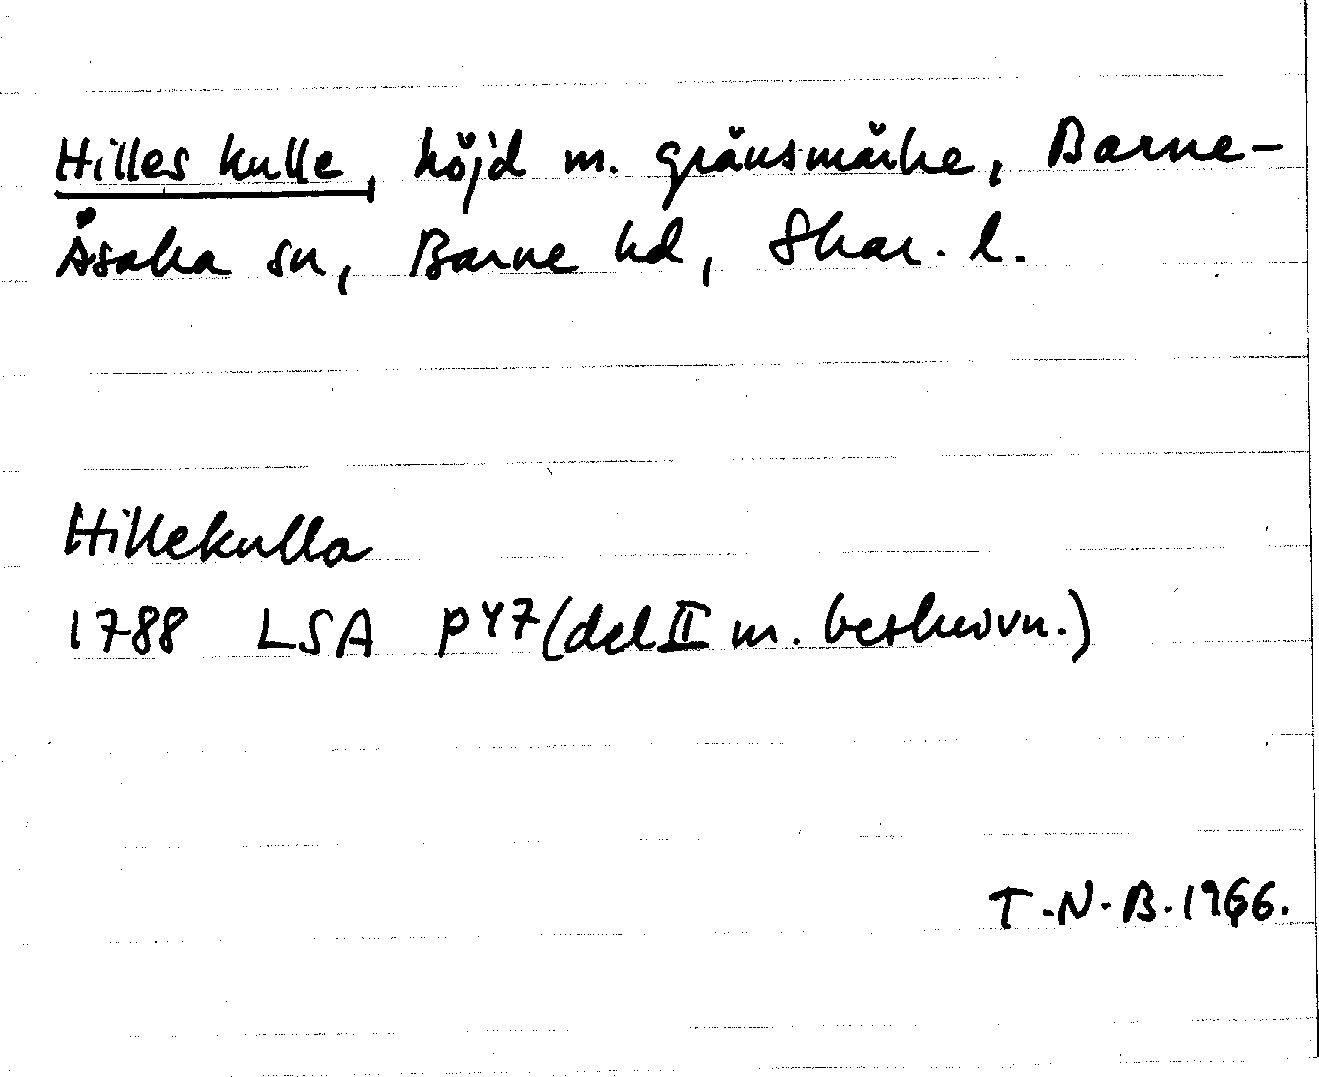 Hilles kulle, höjd m. gränsmärke, Barne-
Åsaka sn, Barne hd, Skar. l.
Hillekulla
1788 LSA P47 (del II m. beskrivn.)
T.N.B. 1966.